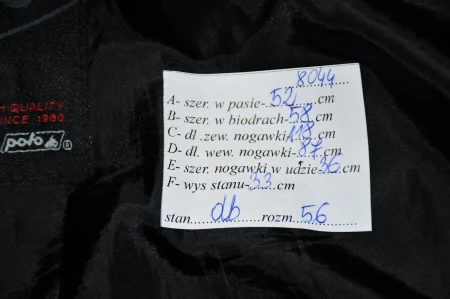 H QUALITY
SINCE 1980
polo ®
8044
A- szer. w pasie-52 cm
B- szer. w biodrach-58 cm
C- dl .zew. nogawki-118 cm
D- dl. wew. nogawki-87 cm
E- szer. nogawki w udzie-36 cm
F- wys stanu-33 cm
stan db rozm 56